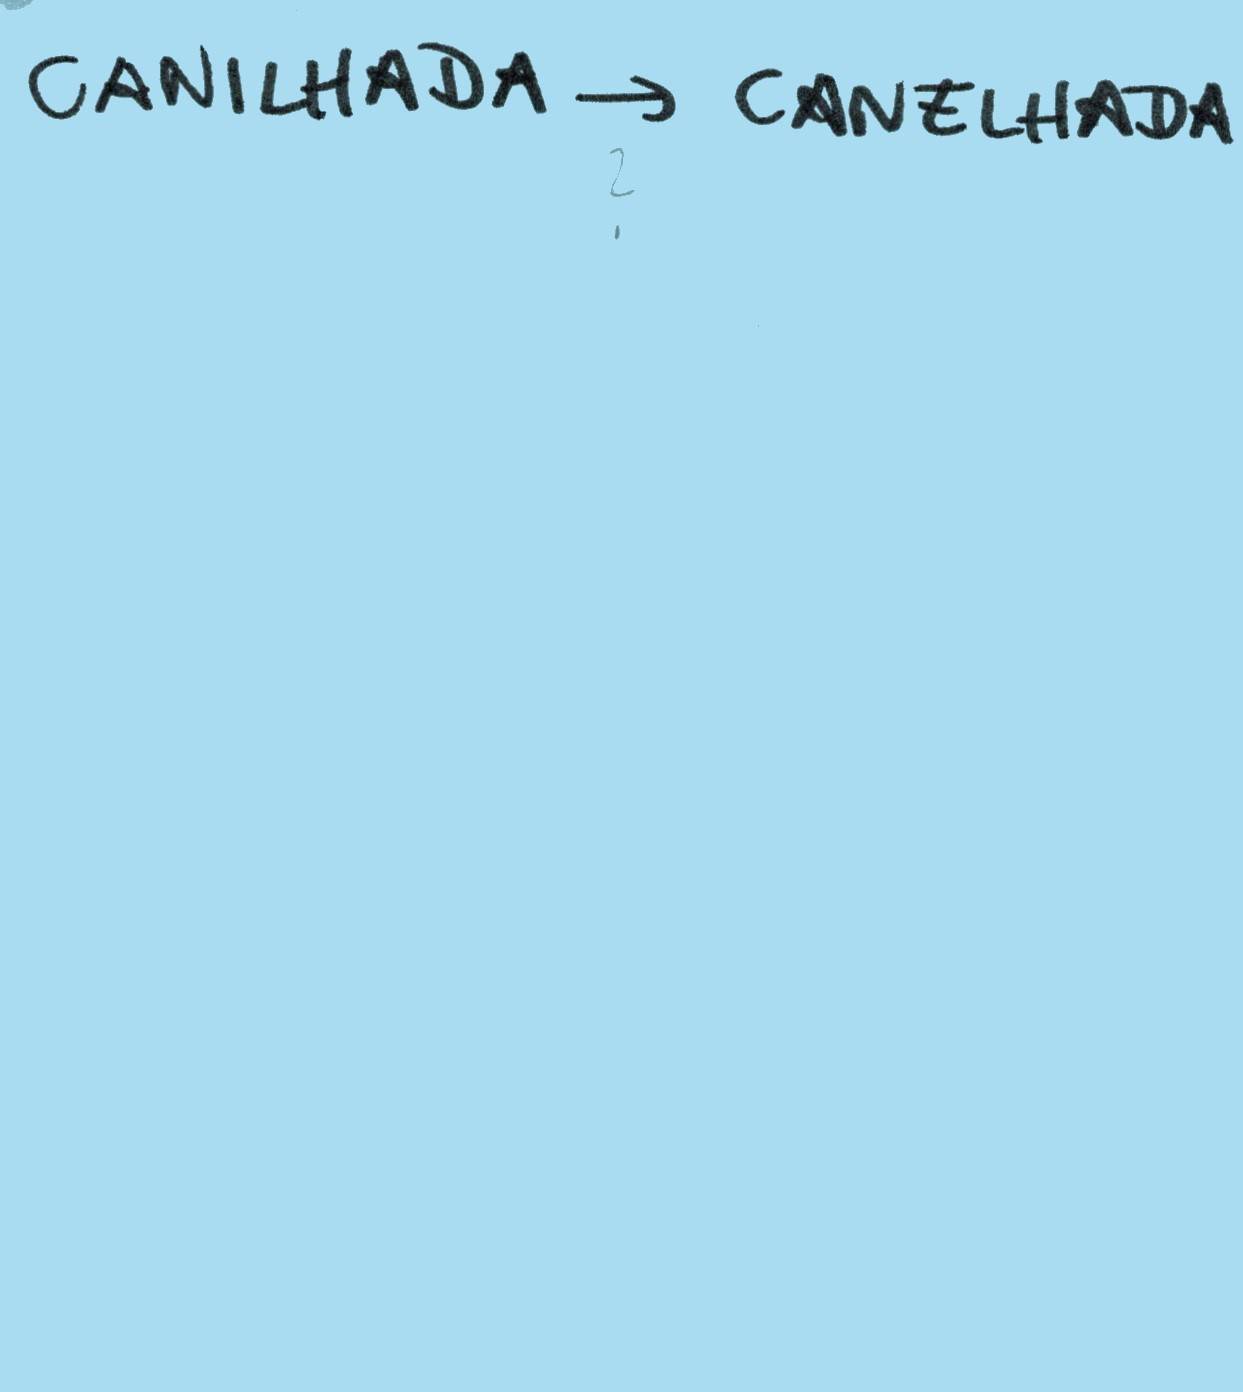 CANILHADA → CANELHADA
?